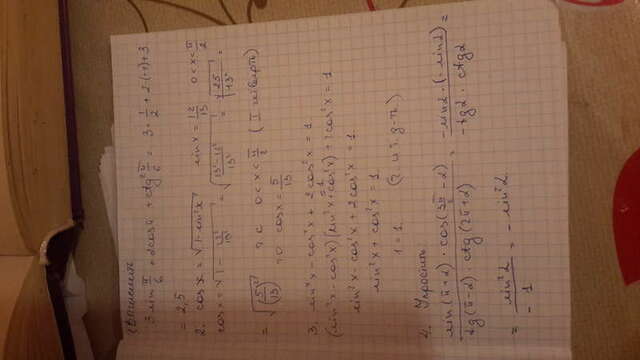 Вычислить
3 sin π/6 + 2cosπ + ctg² π/6 = 3 · 1/2 + 2·(-1) + 3
= 2,5
2. cos x = √(1 - sin²x) sin x = 12/13 0 < x < π/2
cos x = √(1 - 12²/13²) = √((13² - 12²)/13²) = √(25/13²) =
= √((5/13)²) т.к 0 < x < π/2 (I четверть)
то cos x = 5/13
3. sin⁴x - cos⁴x + 2cos²x = 1
(sin²x - cos²x)(sin²x + cos²x) + 2cos²x = 1
sin²x - cos²x + 2cos²x = 1
sin²x + cos²x = 1
1 = 1. (ч и т. д-ть)
4. Упростить
sin(π+2) · cos(3π/2 - 2) / tg(π-2) · ctg(2π+2) = -sin2 · (-sin2) / -tg2 · ctg2 =
= sin²2 / -1 = -sin²2.